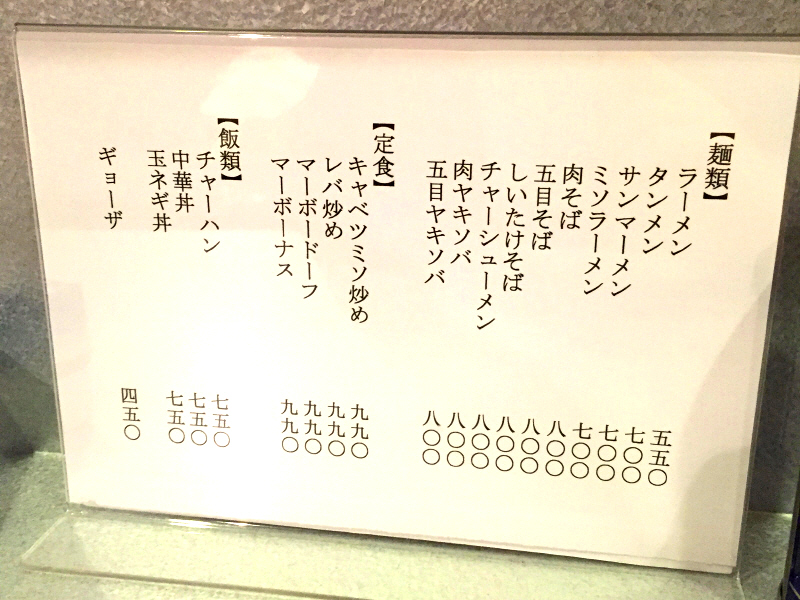 【麺類】
ラーメン 五五〇
タンメン 七〇〇
サンマーメン 七〇〇
ミソラーメン 七〇〇
肉そば 八〇〇
五目そば 八〇〇
しいたけそば 八〇〇
チャーシューメン 八〇〇
肉ヤキソバ 八〇〇
五目ヤキソバ 八〇〇
【定食】
キャベツミソ炒め 九九〇
レバ炒め 九九〇
マーボードーフ 九九〇
マーボーナス 九九〇
【飯類】
チャーハン 七五〇
中華丼 七五〇
玉ネギ丼 七五〇
ギョーザ 四五〇